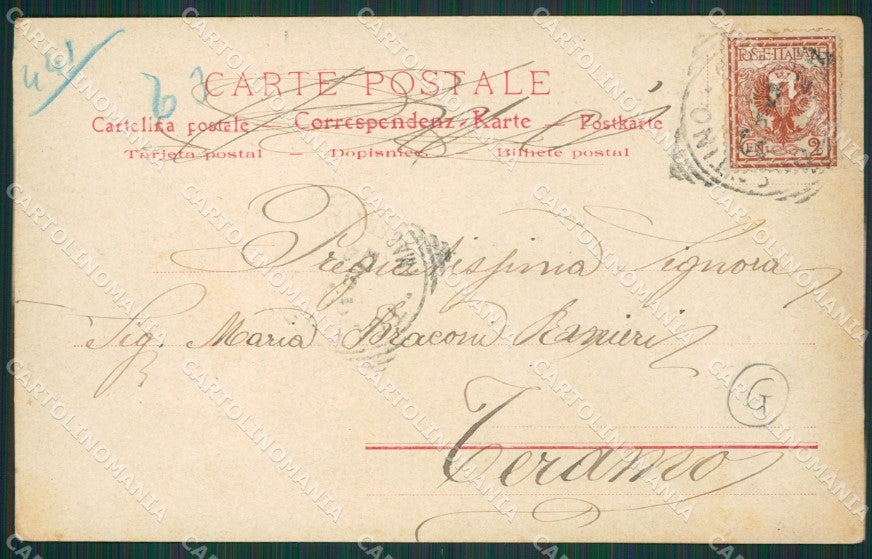 441
CARTE POSTALE
Cartolina postale — Correspondenz-Karte — Postkarte
Tarjeta postal — Dopisnice — Bilhete postal
POSTE ITALIANE
CEN. 2
Pregiatissima Signora
Sig. Maria Braconi Ranieri
Teramo
G
CARTOLINOMANIA